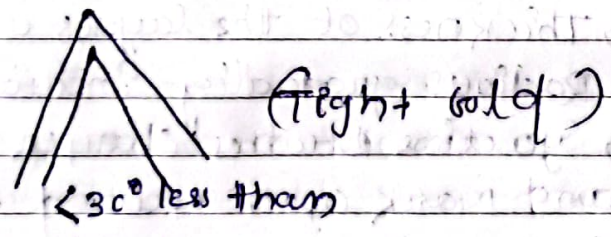 (Tight fold)
<30° less than